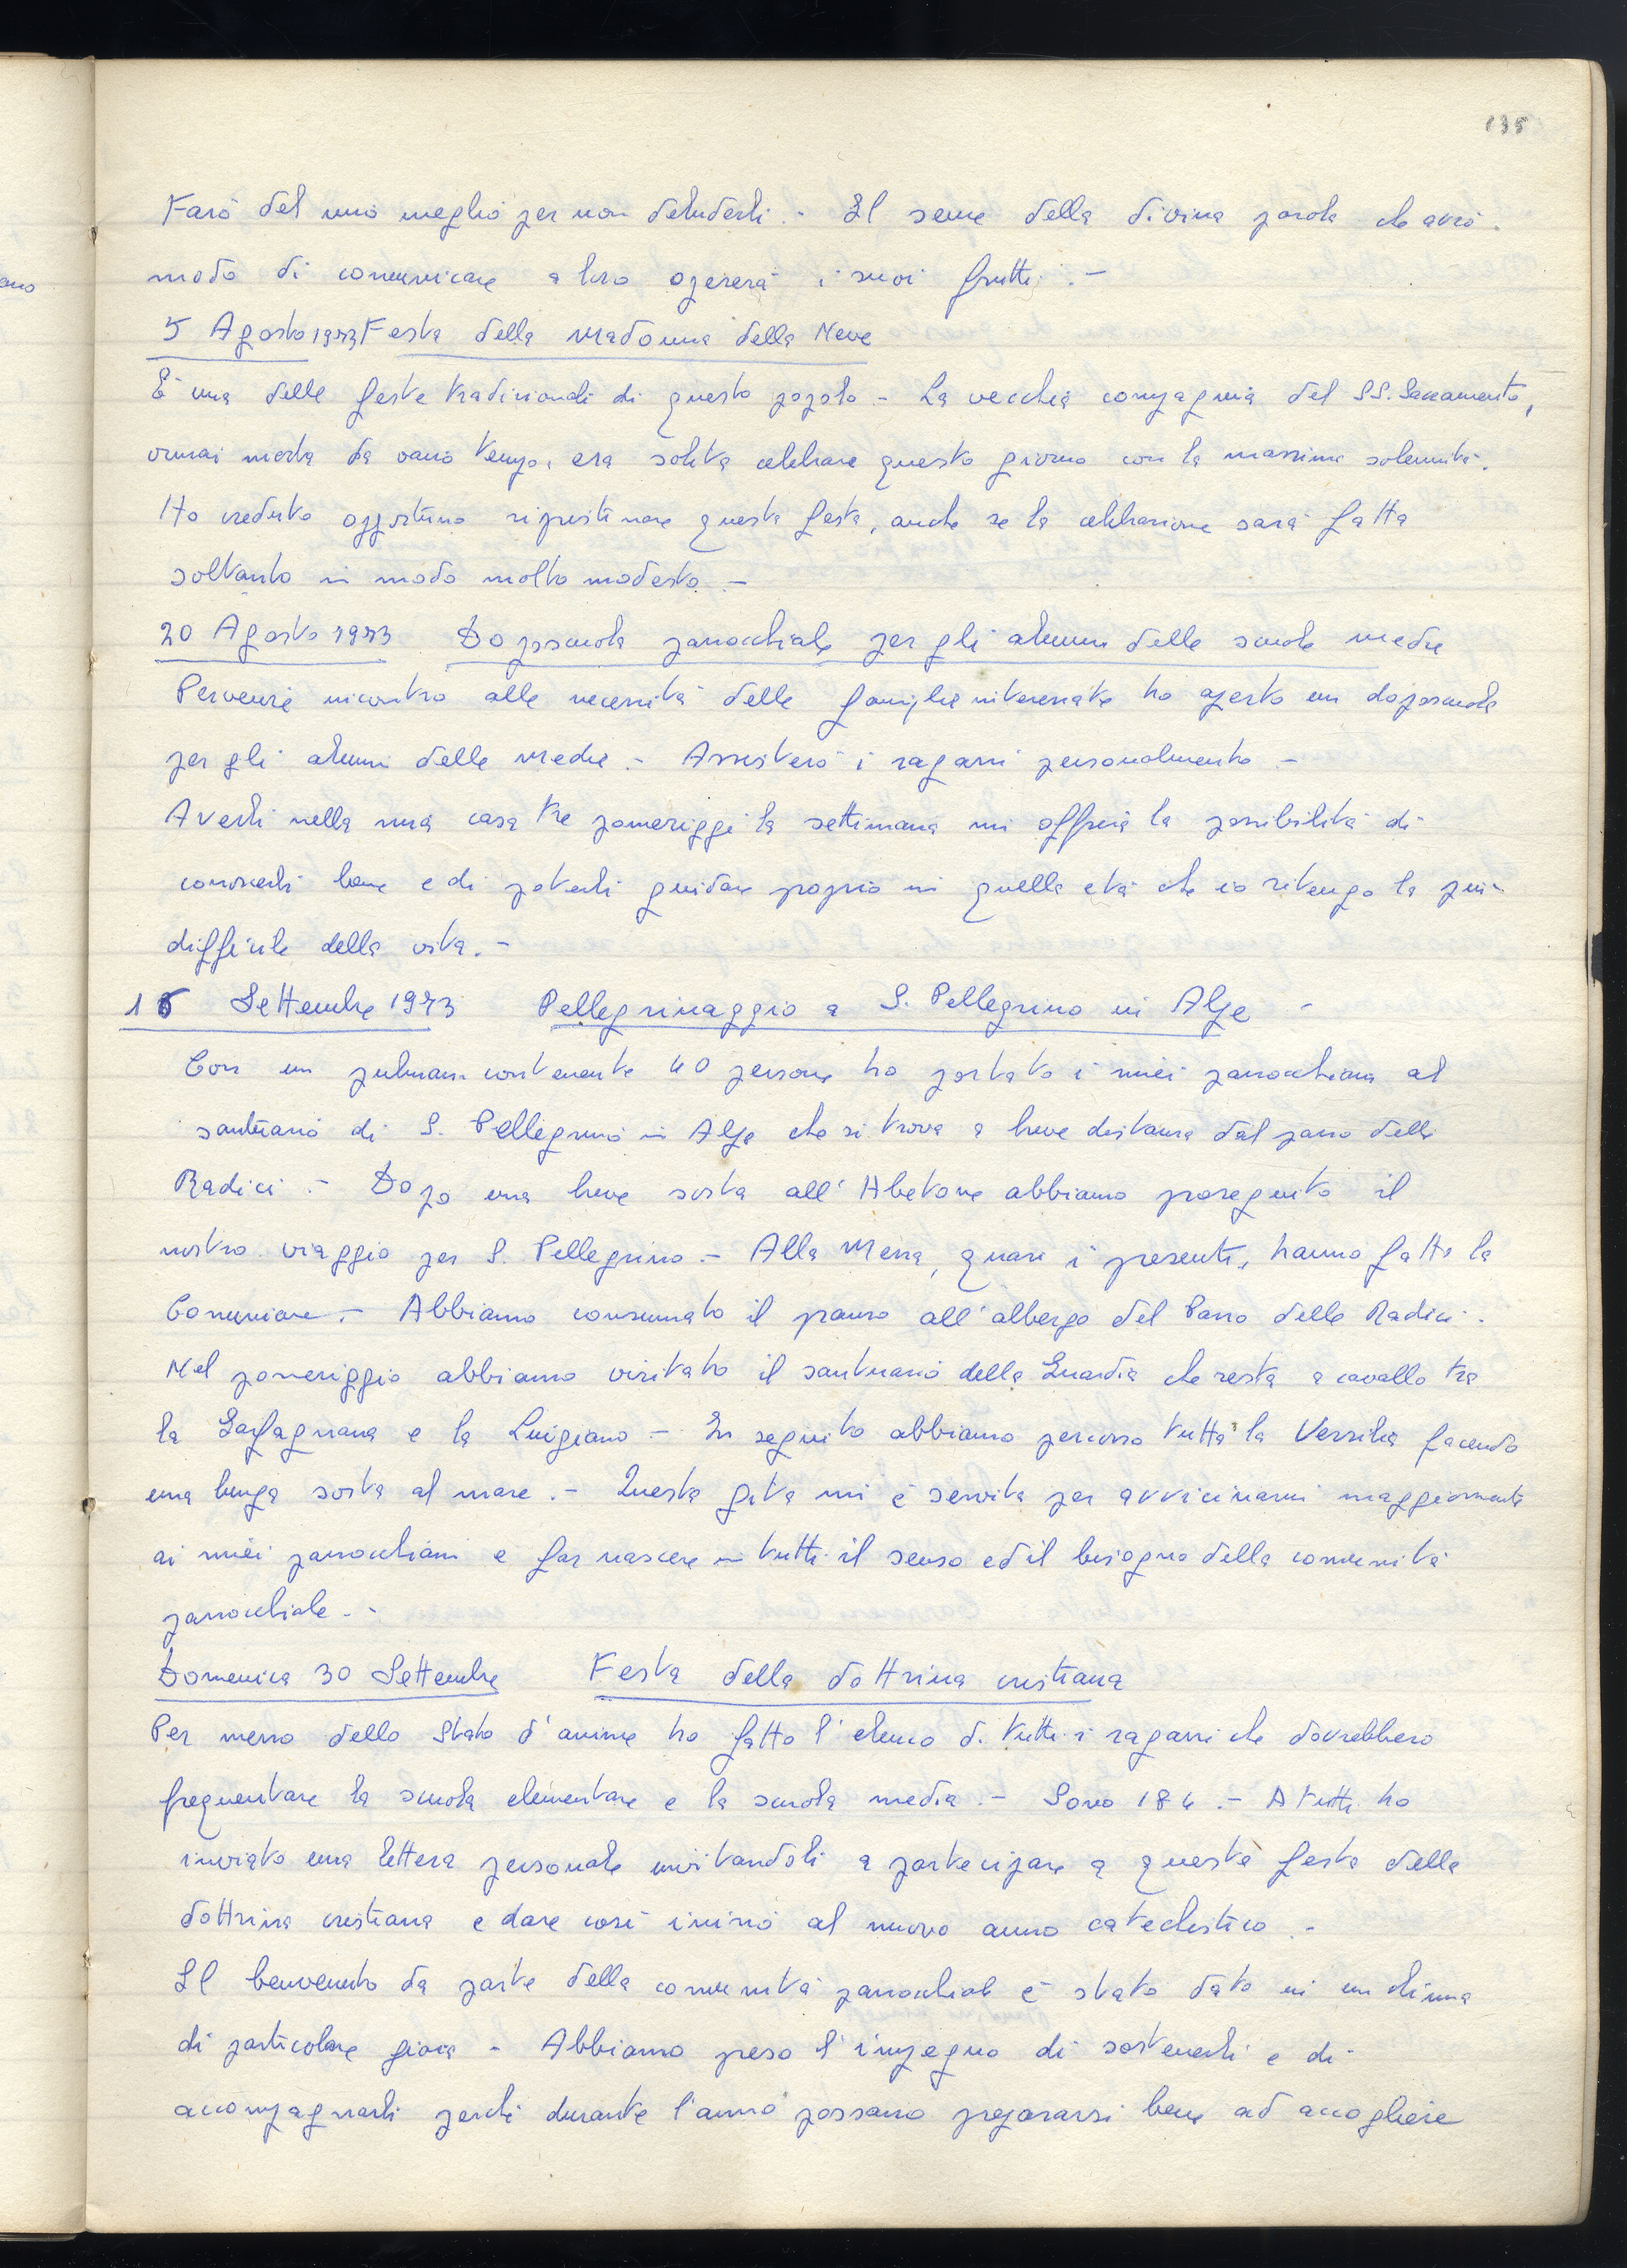 135
Farò del mio meglio per non deluderli.- Il seme della divina parola che avrò
modo di comunicare a loro opererà i suoi frutti.-
5 Agosto 1973 Festa della Madonna della Neve
È una delle feste tradizionali di questo popolo - La vecchia compagnia del SS. Sacramento,
ormai morta da vario tempo, era solita celebrare questo giorno con la massima solennità.
Ho creduto opportuno ripristinare questa festa, anche se la celebrazione sarà fatta
soltanto in modo molto modesto.-
20 Agosto 1973 Doposcuola parrocchiale per gli alunni delle scuole medie
Per venire incontro alle necessità delle famiglie interessate ho aperto un doposcuola
per gli alunni delle Medie.- Assisterò i ragazzi personalmente.-
Averli nella mia casa tre pomeriggi la settimana mi offrirà la possibilità di
conoscerli bene e di poterli guidare proprio in quella età che io ritengo la più
difficile della vita.-
16 Settembre 1973 Pellegrinaggio a S. Pellegrino in Alpe -
Con un pulman contenente 40 persone ho portato i miei parrocchiani al
santuario di S. Pellegrino in Alpe che si trova a breve distanza dal passo delle
Radici.- Dopo una breve sosta all'Abetone abbiamo proseguito il
nostro viaggio per S. Pellegrino.- Alla Messa, quasi i presenti, hanno fatto la
Comunione.- Abbiamo consumato il pranzo all'albergo del Passo delle Radici.
Nel pomeriggio abbiamo visitato il santuario della Guardia che resta a cavallo tra
la Garfagnana e la Luigiana - In seguito abbiamo percorso tutta la Versilia facendo
una lunga sosta al mare.- Questa gita mi è servita per avvicinarmi maggiormente
ai miei parrocchiani e far nascere in tutti il senso ed il bisogno della comunità
parrocchiale.-
Domenica 30 Settembre Festa della dottrina cristiana
Per mezzo dello Stato d'anime ho fatto l'elenco di tutti i ragazzi che dovrebbero
frequentare la scuola elementare e la scuola media.- Sono 184.- A tutti ho
inviato una lettera personale invitandoli a partecipare a questa festa della
dottrina cristiana e dare così inizio al nuovo anno catechistico.-
Il benvenuto da parte della comunità parrocchiale è stato dato in un clima
di particolare gioia - Abbiamo preso l'impegno di sostenerli e di
accompagnarli perchè durante l'anno possano prepararsi bene ad accogliere